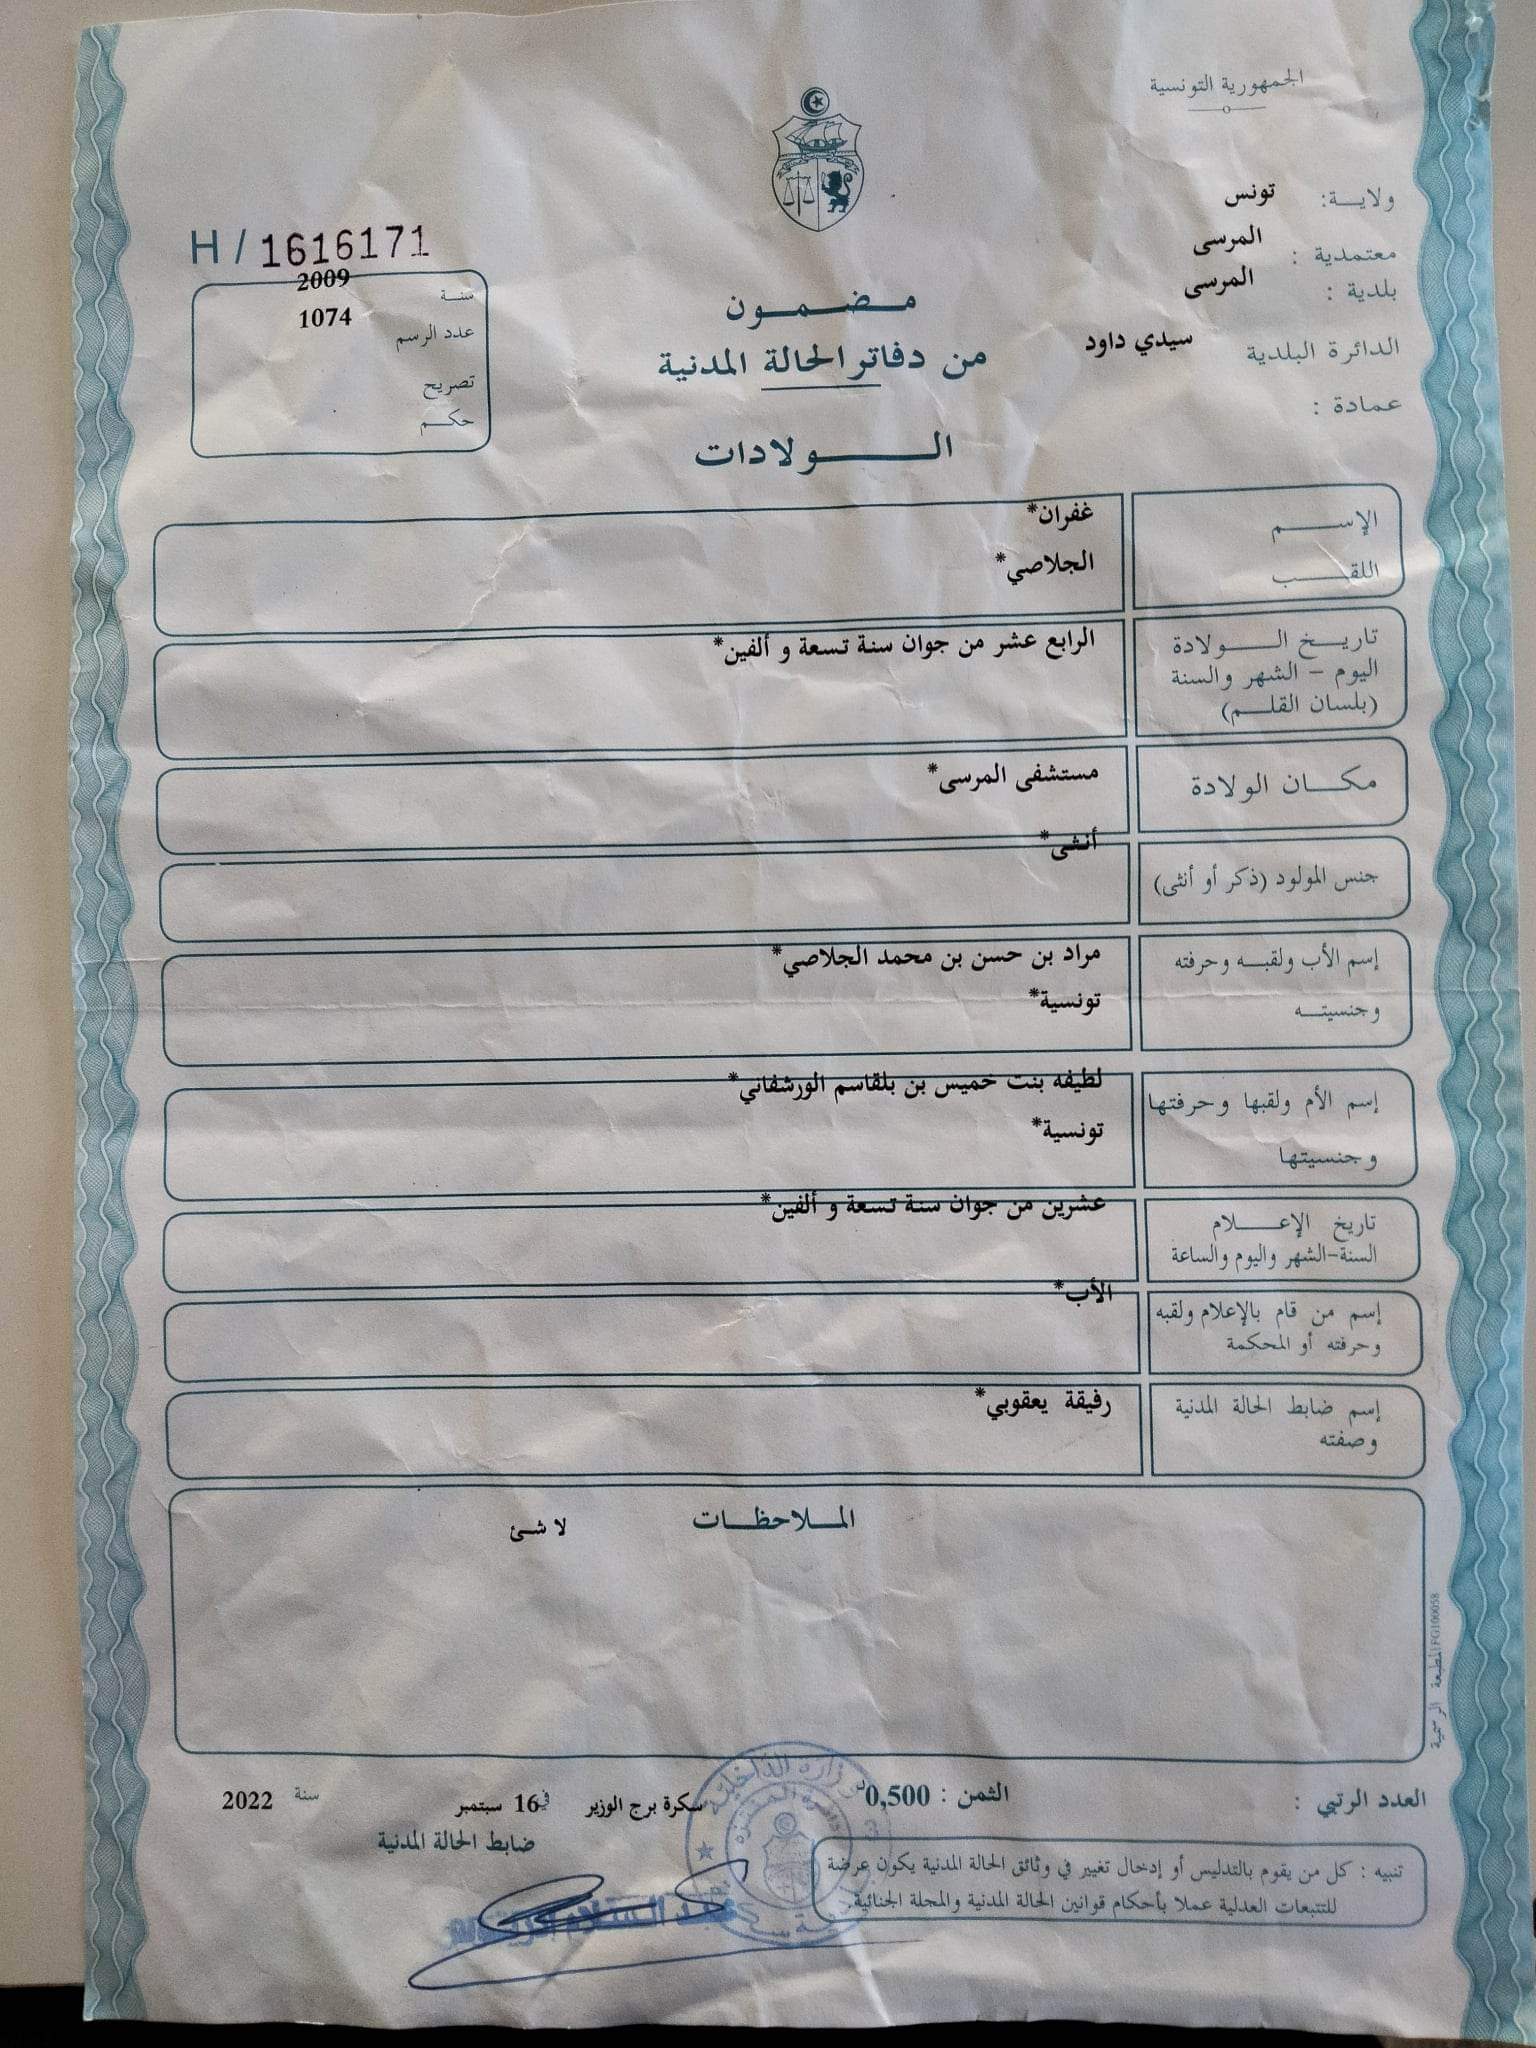 الجمهورية التونسية
ولاية: تونس
معتمدية : المرسى
بلدية : المرسى
الدائرة البلدية سيدي داود
عمادة :
H / 1616171
سنة 2009
عدد الرسم 1074
تصريح
حكم
مضمون
من دفاتر الحالة المدنية
الولادات
الإسم غفران*
اللقب الجلاصي*
تاريخ الولادة الرابع عشر من جوان سنة تسعة و ألفين*
اليوم - الشهر والسنة
(بلسان القلم)
مكان الولادة مستشفى المرسى*
جنس المولود (ذكر أو أنثى) أنثى*
إسم الأب ولقبه وحرفته مراد بن حسن بن محمد الجلاصي*
وجنسيته تونسية*
إسم الأم ولقبها وحرفتها لطيفه بنت خميس بن بلقاسم الورشفاني*
وجنسيتها تونسية*
تاريخ الإعلام عشرين من جوان سنة تسعة و ألفين*
السنة-الشهر واليوم والساعة
إسم من قام بالإعلام ولقبه الأب*
وحرفته أو المحكمة
إسم ضابط الحالة المدنية رفيقة يعقوبي*
وصفته
الملاحظات
لا شئ
المطبعة الرسمية FG100058
العدد الرتبي : الثمن : 0,500د سكرة برج الوزير في 16 سبتمبر سنة 2022
ضابط الحالة المدنية
تنبيه : كل من يقوم بالتدليس أو إدخال تغيير في وثائق الحالة المدنية يكون عرضة
للتتبعات العدلية عملا بأحكام قوانين الحالة المدنية والمجلة الجنائية.
وزارة الداخلية